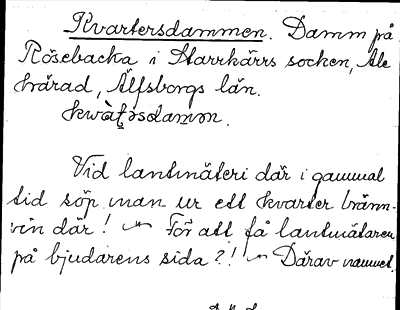 Kvartersdammen. Damm på
Rösebacka i Starrkärrs socken, Ale
härad, Älfsborgs län.
kwàṭəsdamən.
Vid lantmäteri där i gammal
tid söp man ur ett kvarter bränn-
vin där! — För att få lantmätaren
på bjudarens sida?! — Därav namnet.